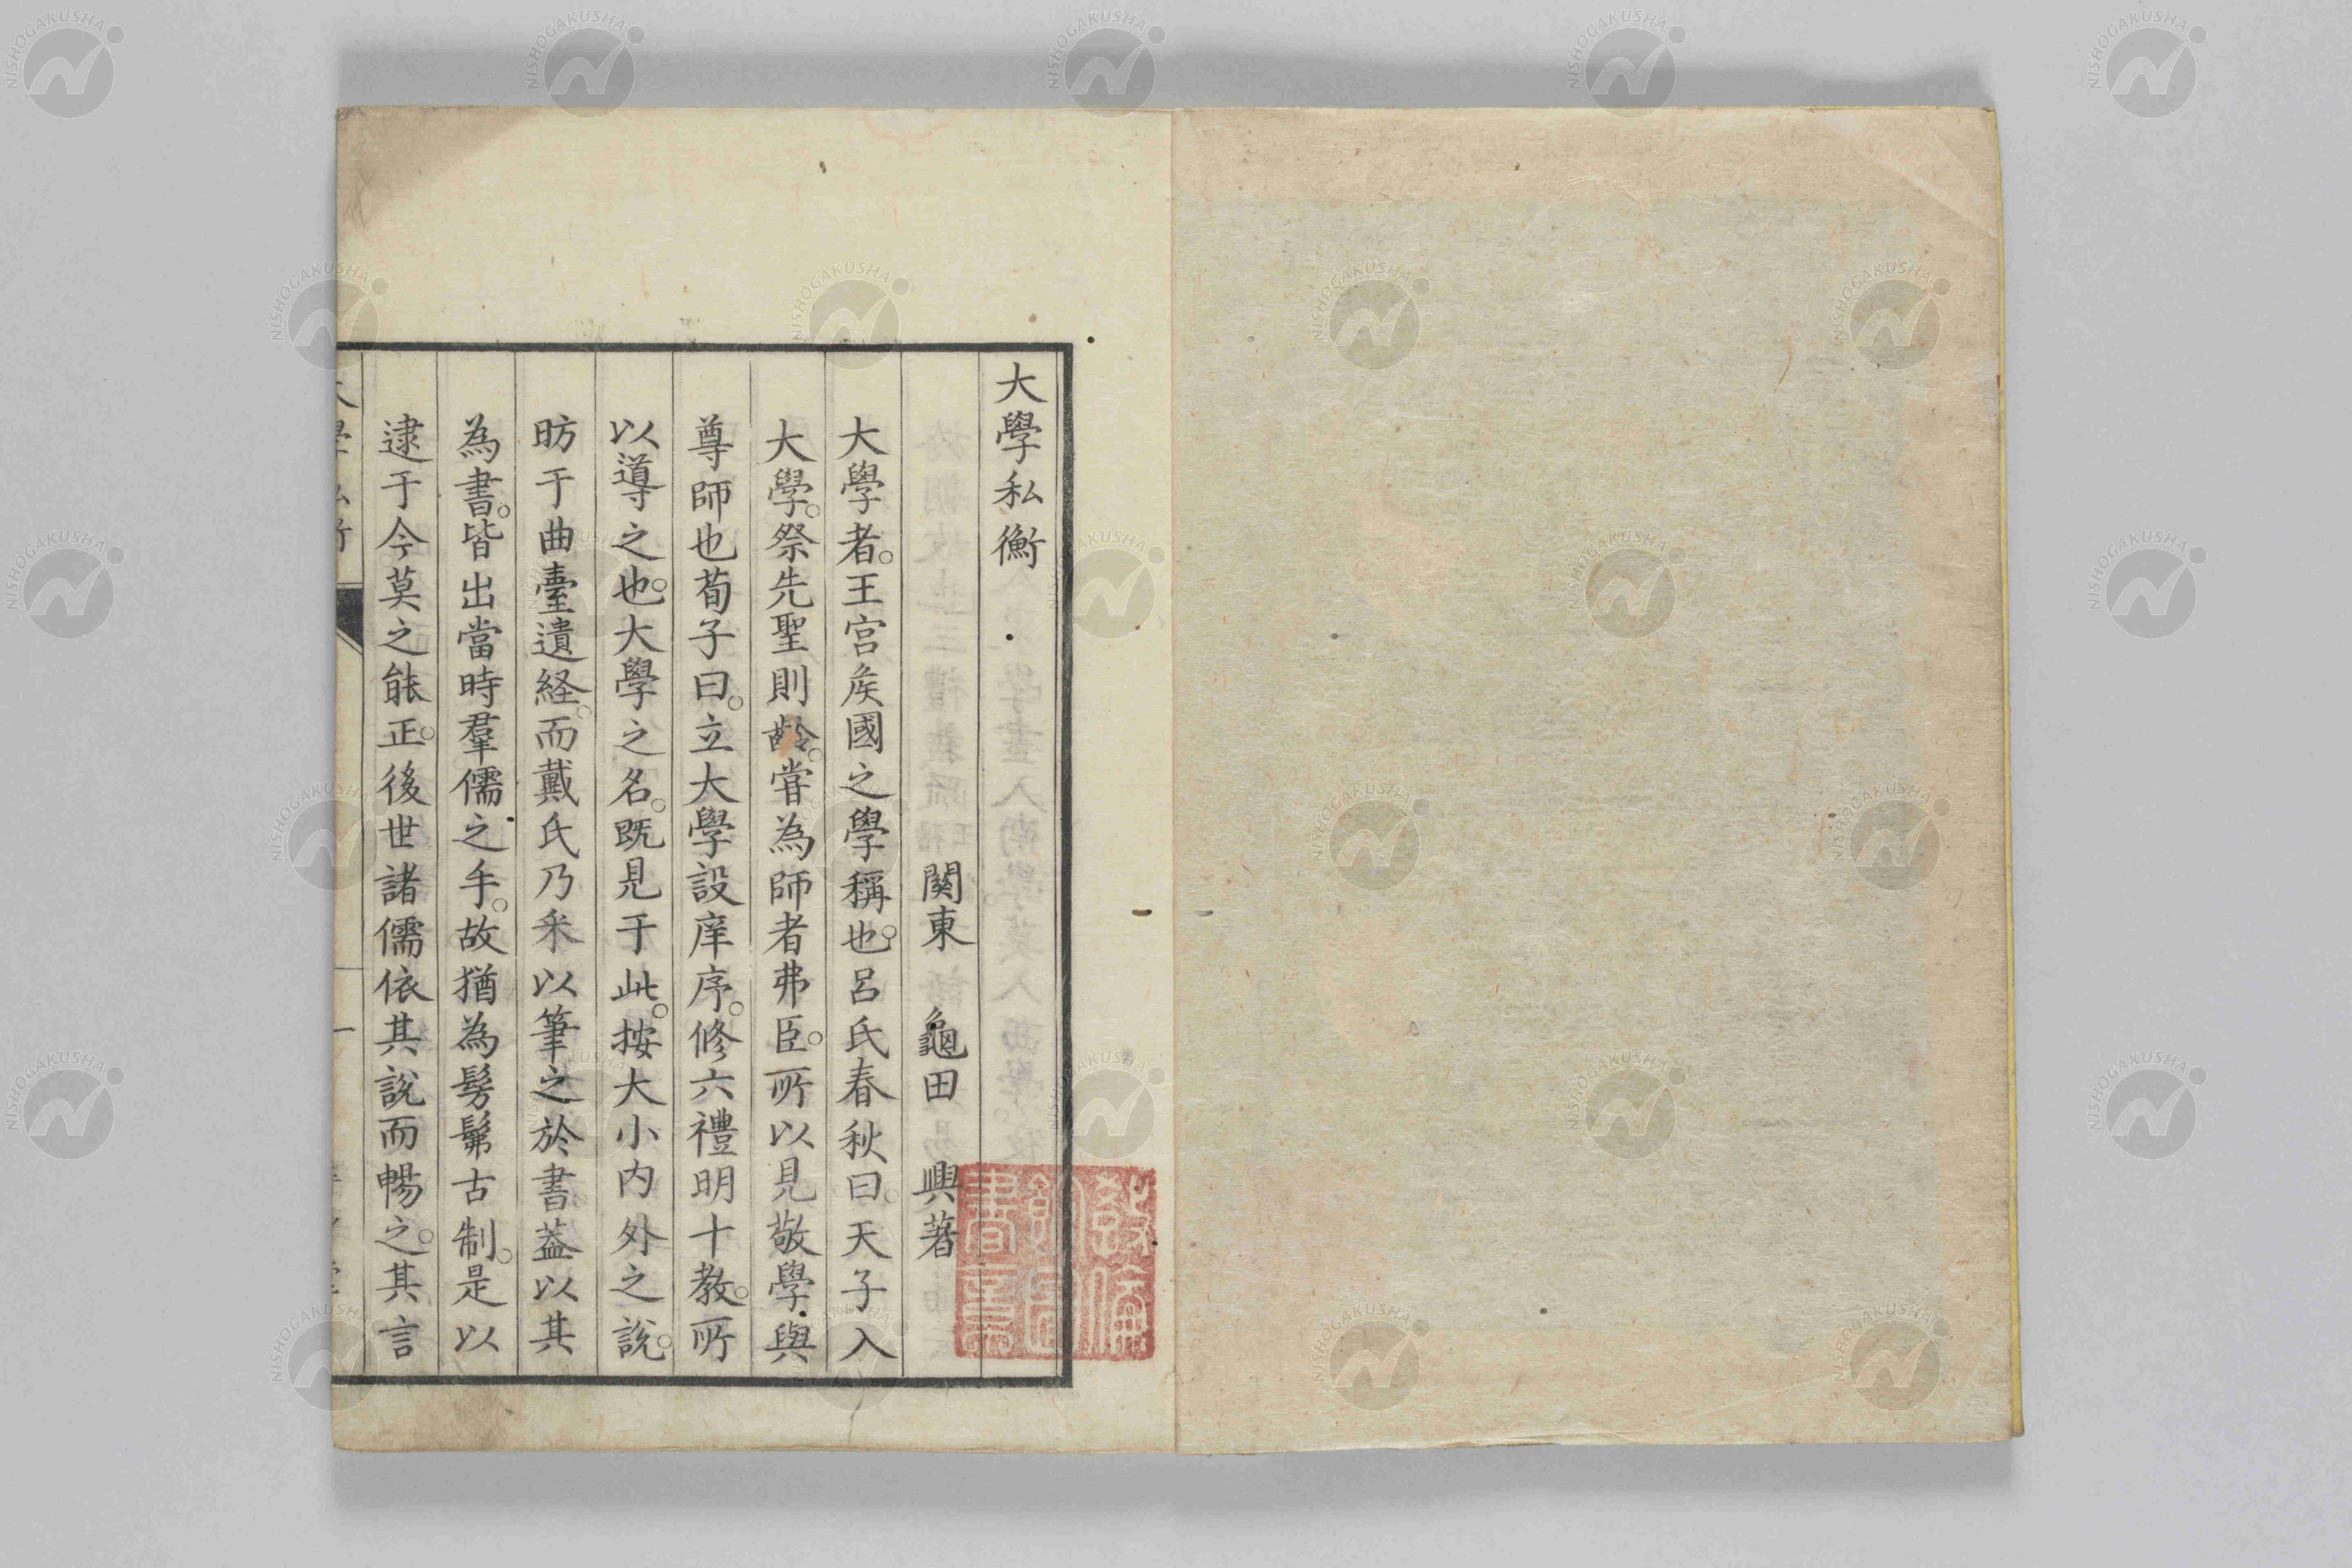 大學私衡
關東 龜田 興著
大學者。王宮矦國之學稱也。呂氏春秋曰。天子入
大學。祭先聖則齡。嘗為師者弗臣。所以見敬學與
尊師也荀子曰。立大學設庠序。修六禮明十教。所
以導之也。大學之名。既見于此。按大小内外之說。
昉于曲臺遺経。而戴氏乃采以筆之於書葢以其
為書。皆出當時羣儒之手。故猶為髣髴古制。是以
逮于今莫之能正。後世諸儒依其說而暢之。其言
NISHOGAKUSHA